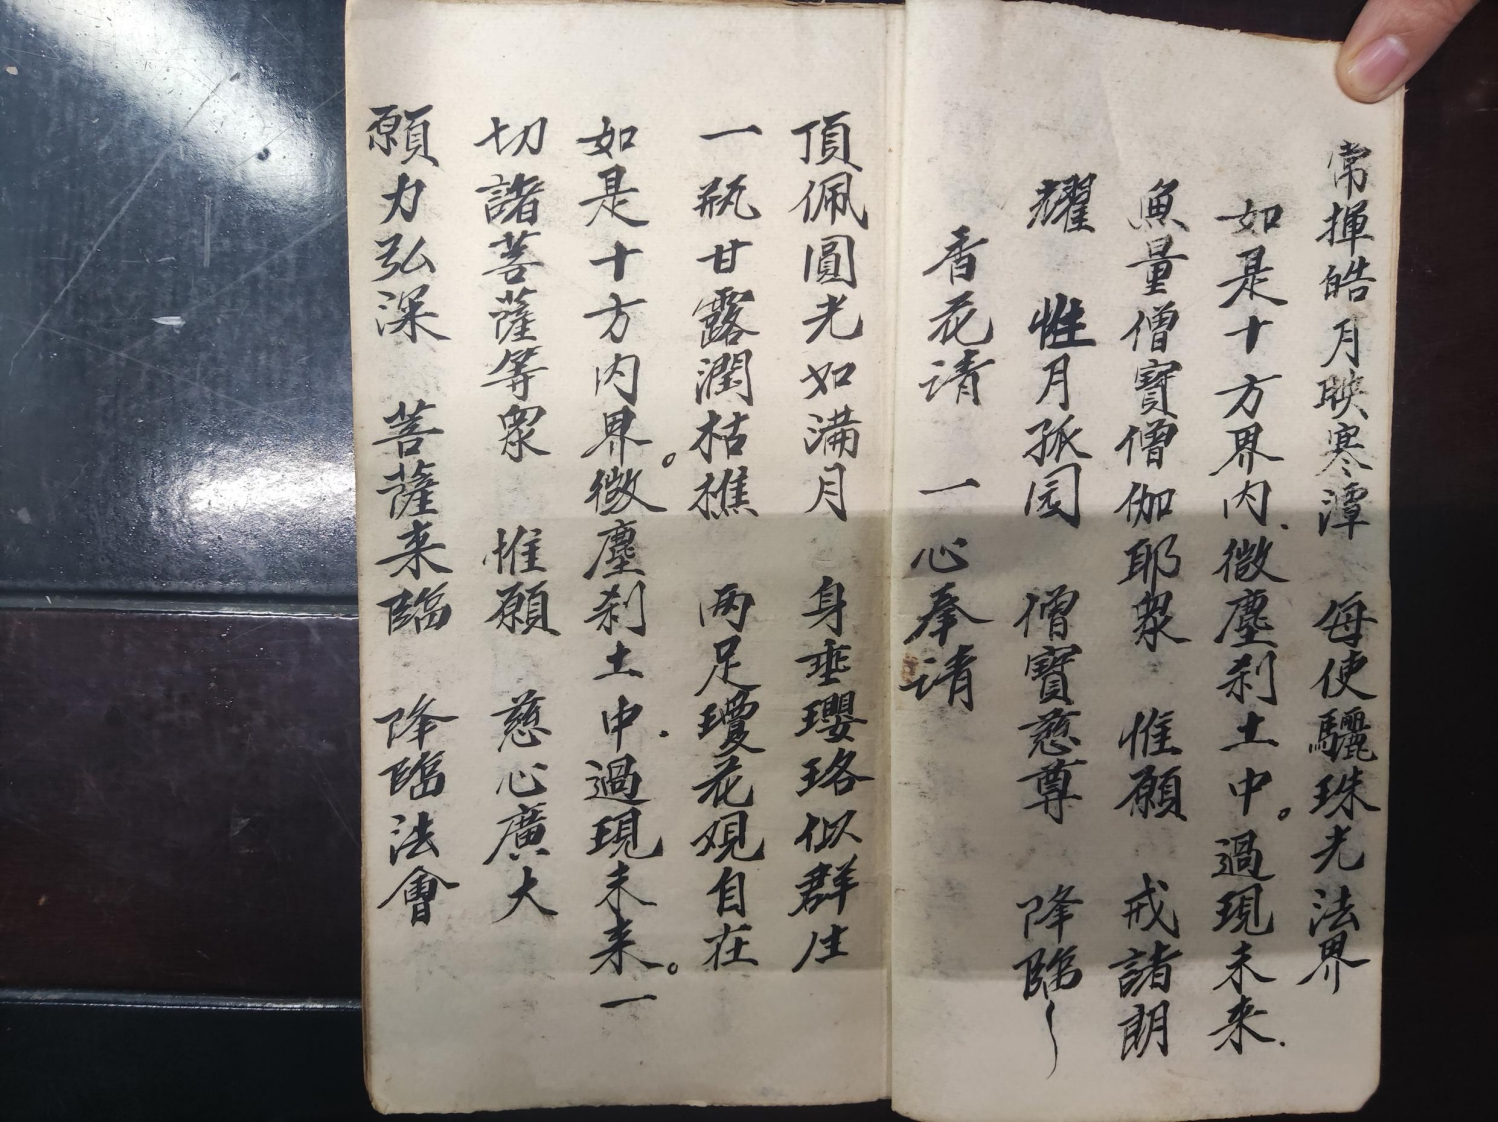 常揮皓月映寒潭　每使驪珠光法界
如是十方界内、微塵刹土中。過現未来.
魚量僧寶僧伽耶衆　惟願　戒諸朗
耀　性月孤园　僧寶慈尊　降臨〱
香花请　一心奉请
頂佩圓光如满月　身垂瓔珞似群生
一瓶甘露潤枯樵　两足瓊花观自在
如是十方内界。微塵刹土中.過現未来。一
切諸菩薩等衆　惟願　慈心廣大
願力弘深　菩薩来臨　降臨法會